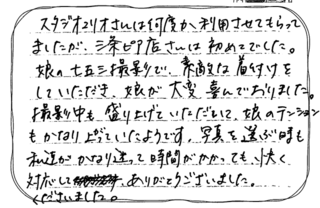 スタジオマリオさんは何度か利用させてもらって
ましたが、三条ピア店さんは初めてでした。
娘の七五三撮影で、素敵な着付けを
していただき、娘が大変喜んでおりました。
撮影中も盛り上げていただいて、娘のテンション
もかなり上がっていたようです。写真を選ぶ時も
私達がかなり迷って時間がかかっても、快く
対応して、ありがとうございました。
くださいました。